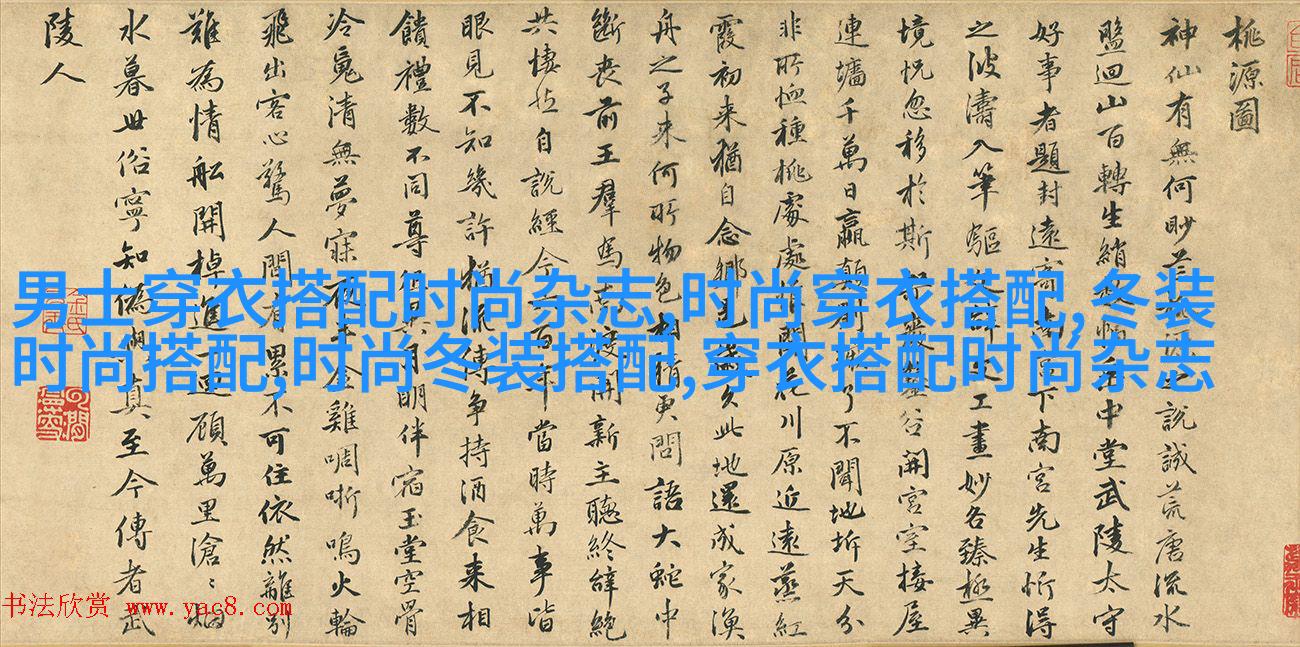 男士穿衣搭配时尚杂志,时尚穿衣搭配,冬装
时尚搭配,时尚冬装搭配,穿衣搭配时尚杂志
桃源圖
神仙有無何眇說誠荒唐流水
盤迴山百轉生綃中堂武陵太守
好事者題封遠寄南下南宮先生忻得
之波濤入筆驅工畫妙各臻極異
境恍忽移於斯谷開宮室接屋
連墻千萬日嬴顛了不聞地坼天分
非所恤種桃處處開川原近遠蒸紅
霞初來猶自念鄉邑此地還成家漁
舟之子來何所物色相猜更問語大蛇中
斷喪前王羣馬渡開新主聽終辭絕
共悽然自說經今百年當時萬事皆
眼見不知幾許猶流傳爭持酒食來相
饋禮數不同尊月明伴宿玉堂空骨
冷魂清無夢寐夜金雞啁哳鳴火輪
飛出客心驚人間有累不可住依然離別
難為情船開棹進顧萬里滄〻烟
水暮世俗寧知偽真至今傳者武
陵人
书法欣赏 www.yac8.com